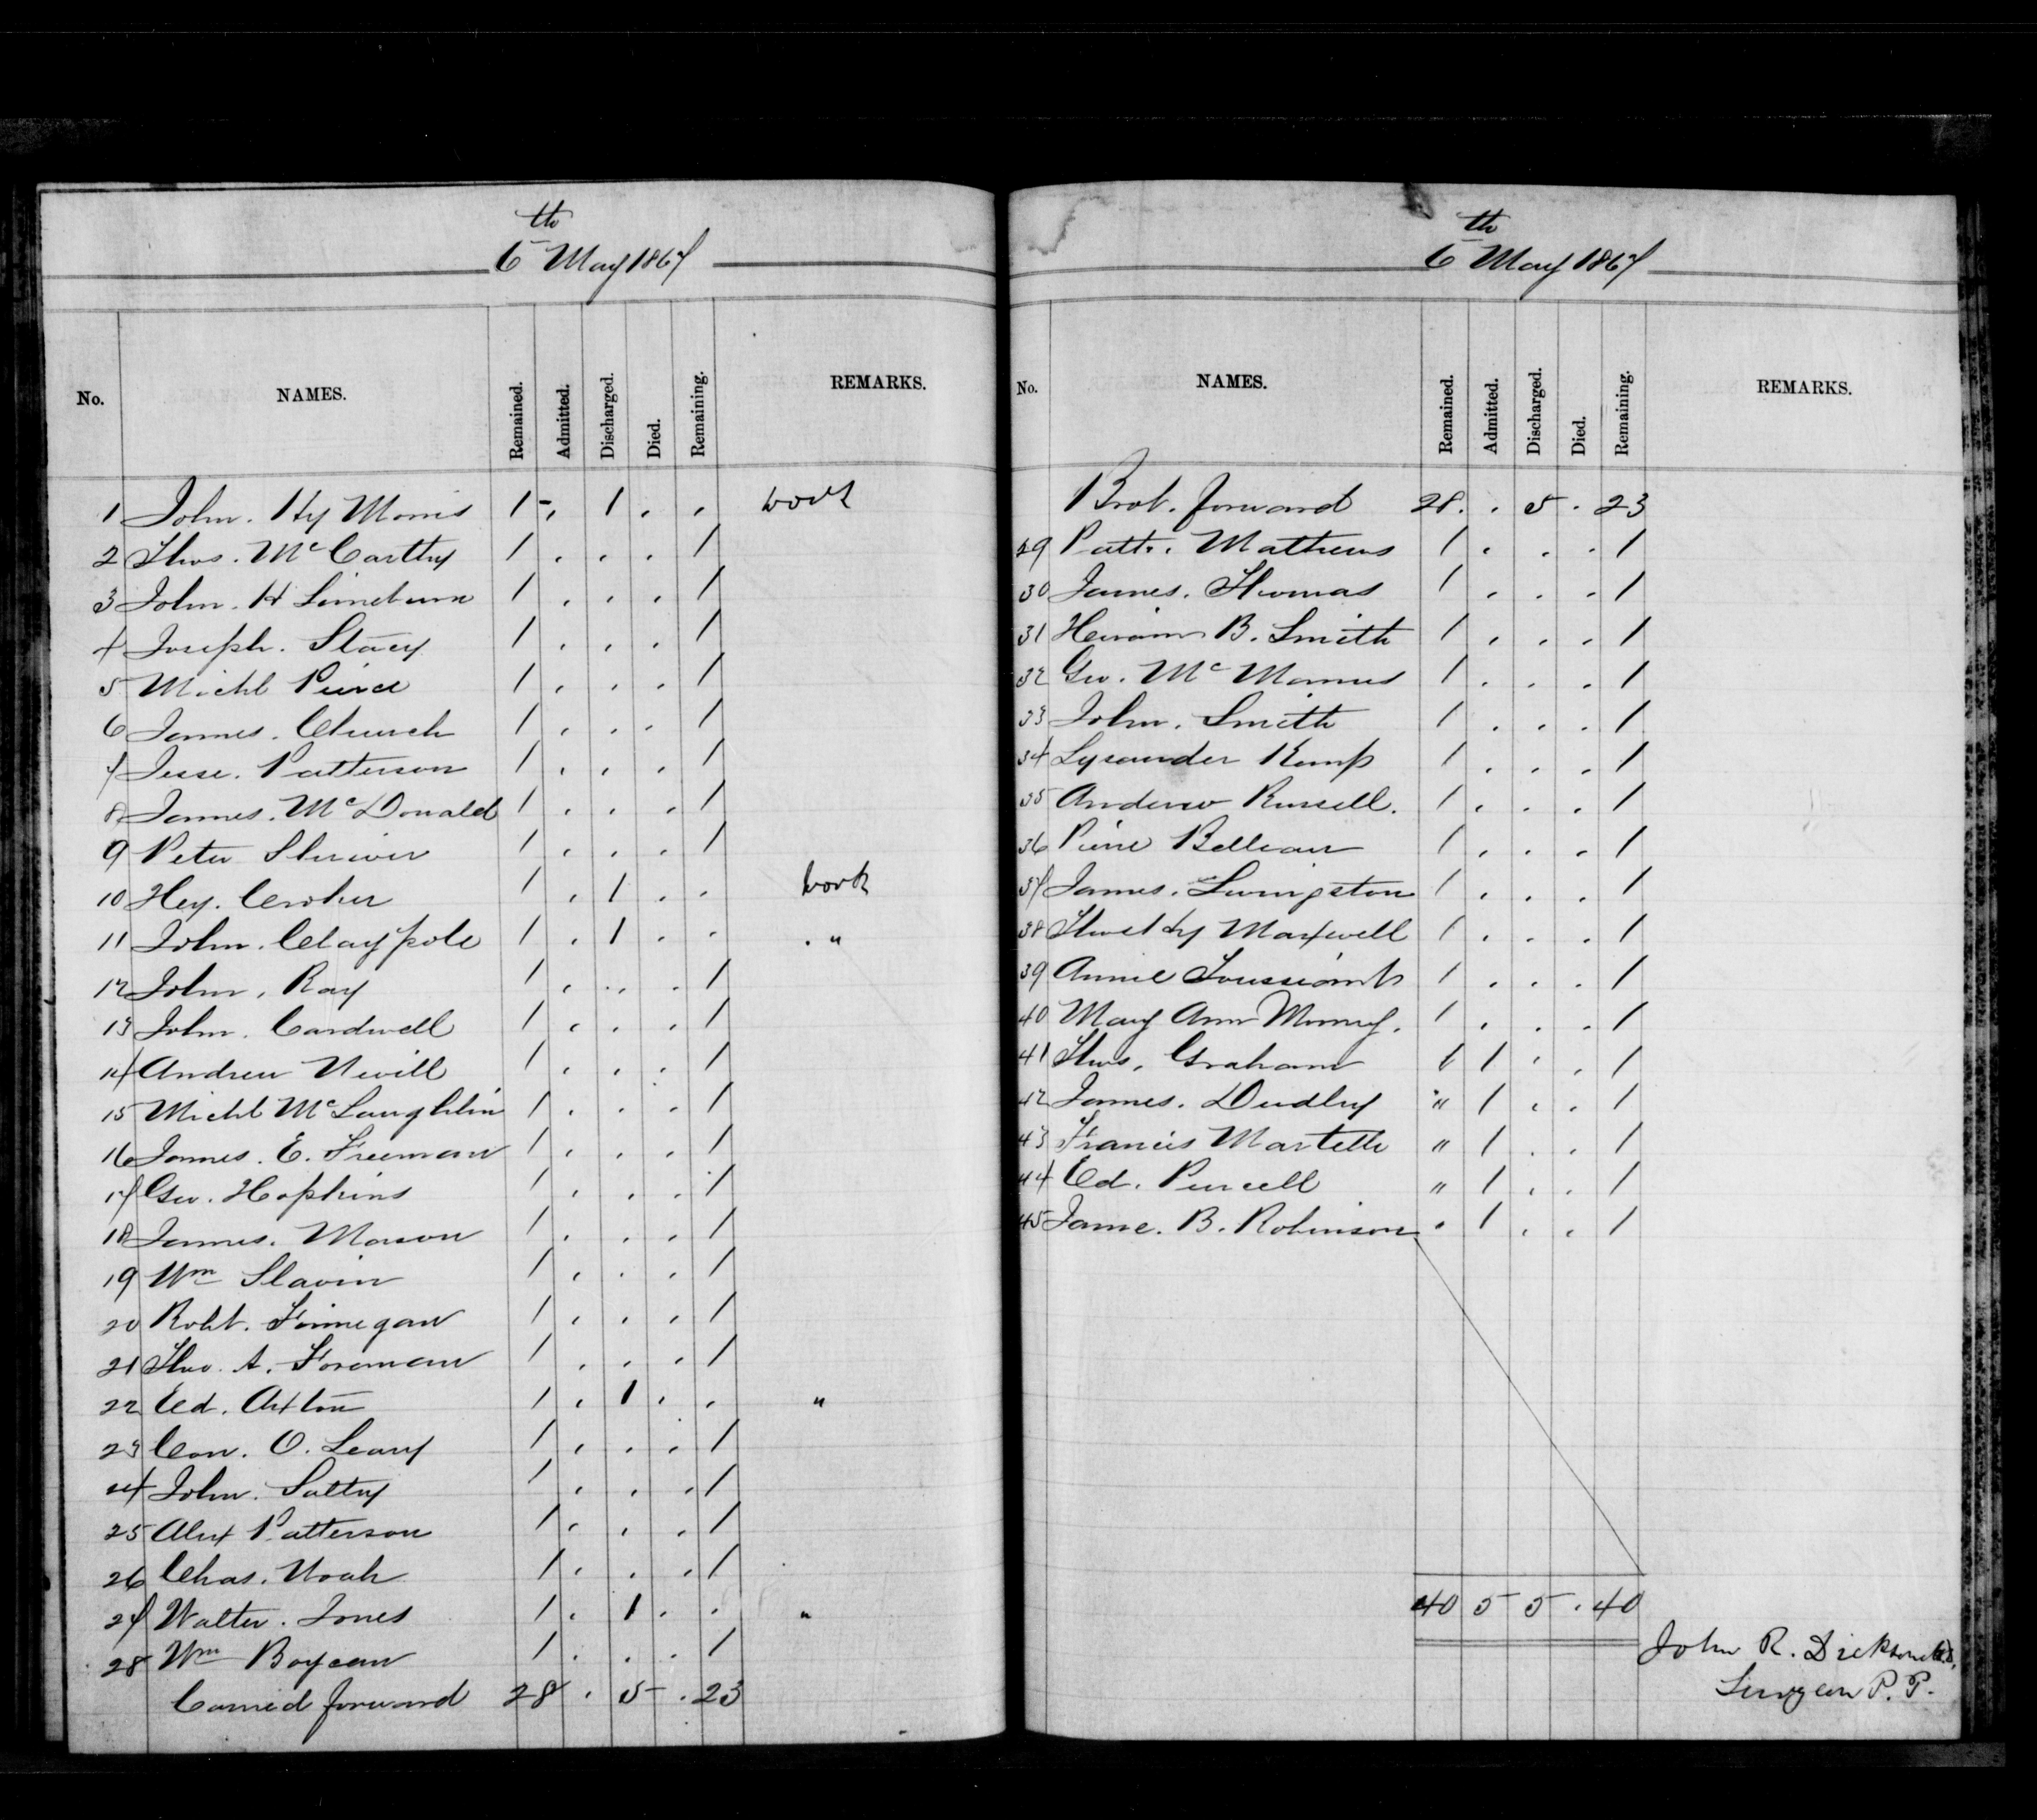 6th May 1867
No. NAMES. Remained. Admitted. Discharged. Died. Remaining. REMARKS.
1 John. Hy Morris 1 - . 1 . . work
2 Thos. McCarthy 1 . . . 1
3 John. H Limeburn 1 . . . 1
4 Joseph. Stacy 1 . . . 1
5 Michl Peirce 1 . . . 1
6 James. Church 1 . . . 1
7 Jesse. Patterson 1 . . . 1
8 James. McDonald 1 . . . 1
9 Peter Shriver 1 . . . 1
10 Hey. Croker 1 . 1 . . work
11 John. Claypole 1 . 1 . . . "
12 John. Ray 1 . . . 1
13 John. Cardwell 1 . . . 1
14 Andrew Nevill 1 . . . 1
15 Michl McLaughlin 1 . . . 1
16 James. E. Freeman 1 . . . 1
17 Geo. Hopkins 1 . . . 1
18 James. Mason 1 . . . 1
19 Wm Slavin 1 . . . 1
20 Robt. Finnegan 1 . . . 1
21 Tho. A. Foreman 1 . . . 1
22 Ed. Axton 1 . 1 . . "
23 Con. O. Leary 1 . . . 1
24 John. Sattry 1 . . . 1
25 Alex Patterson 1 . . . 1
26 Chas. Noah 1 . . . 1
27 Walter. Jones 1 . 1 . . "
28 Wm Boyeau 1 . . . 1
Carried forward 28 . 5 - . 23
6th May 1867
No. NAMES. Remained. Admitted. Discharged. Died. Remaining. REMARKS.
Brot. forward 28. . 5 . 23
29 Patk. Mathews 1 . . . 1
30 James. Thomas 1 . . . 1
31 Heiram B. Smith 1 . . . 1
32 Geo. McMannus 1 . . . 1
33 John. Smith 1 . . . 1
34 Lysander Kemp 1 . . . 1
35 Andrew Russell. 1 . . . 1
36 Pierre Belleau 1 . . . 1
37 James. Livingston 1 . . . 1
38 Maxwell 1 . . . 1
39 Annie 1 . . . 1
40 Mary Ann Murray. 1 . . . 1
41 Thos. Graham 1 . . 1
42 James. Dudley " 1 . . 1
43 Francis Martelle " 1 . . 1
44 Ed. Purcell " 1 . . 1
45 Jame. B. Robinson . 1 . . 1
40 5 5 . 40
John R. Dickson
Surgeon P. P.